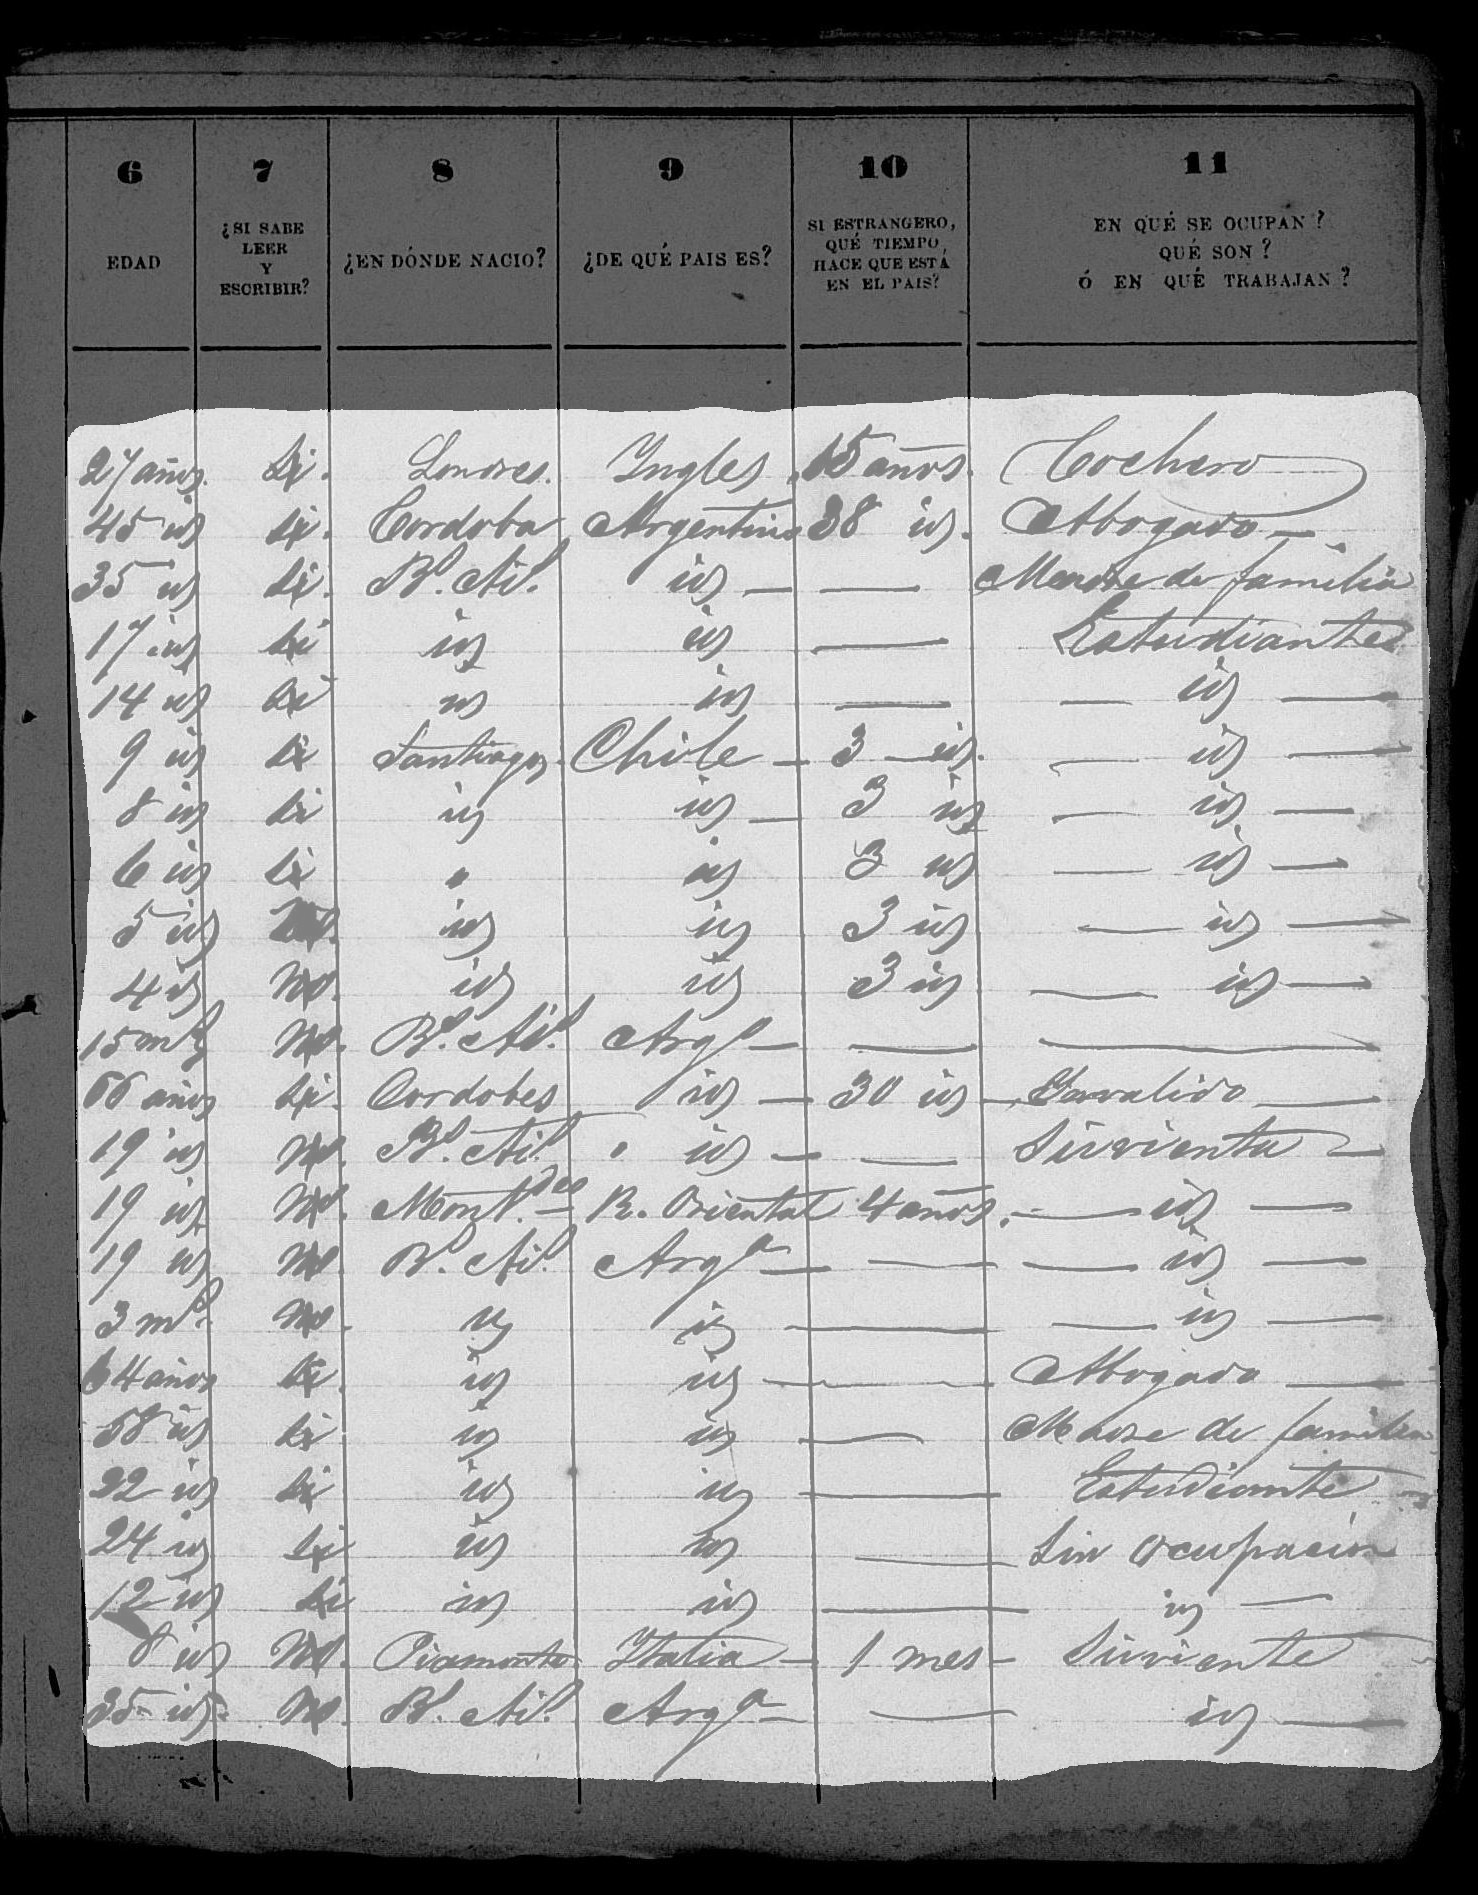 6 7 8 9 10 11
EDAD ¿SI SABE LEER Y ESCRIBIR? ¿EN DÓNDE NACIO? ¿DE QUÉ PAIS ES? SI ESTRANGERO, QUÉ TIEMPO, HACE QUE ESTÁ EN EL PAIS? EN QUÉ SE OCUPAN? QUÉ SON? Ó EN QUÉ TRABAJAN?
27 años Si. Londres. Yngles 15 años. Cochero
45 id Si. Cordoba Argentino 38 id. Abogado —
35 id Si. Bs. Ais. id — — Madre de familia
17 id Si id id — Estudiante
14 id Si id id — — id —
9 id Si Santiago. Chile — 3 — id. — id —
8 id Si id id — 3 id — id —
6 id Si " id 3 id — id —
5 id id id 3 id — id —
4 id No. id id 3 id — id —
15 ms No. Bs. Ais. Arga — — —
66 años Si. Cordobes id — 30 id — Ynvalido —
19 id No. Bs. Ais. " id — — Sirvienta —
19 id No. Mont.deo — R. Oriental 4 años. — id —
19 id No Bs. Ais. Arga — — — id —
3 ms. No. id id — — id —
64 años Si. id id — Abogado —
58 id Si id id — Madre de familia
22 id Si id id — Estudiante
24 id Si id id — Sin ocupacion
12 id Si id id — id —
8 id No. Piamonte Ytalia — 1 mes — Sirviente
35 id. No. Bs. Ais. Arga — — id —